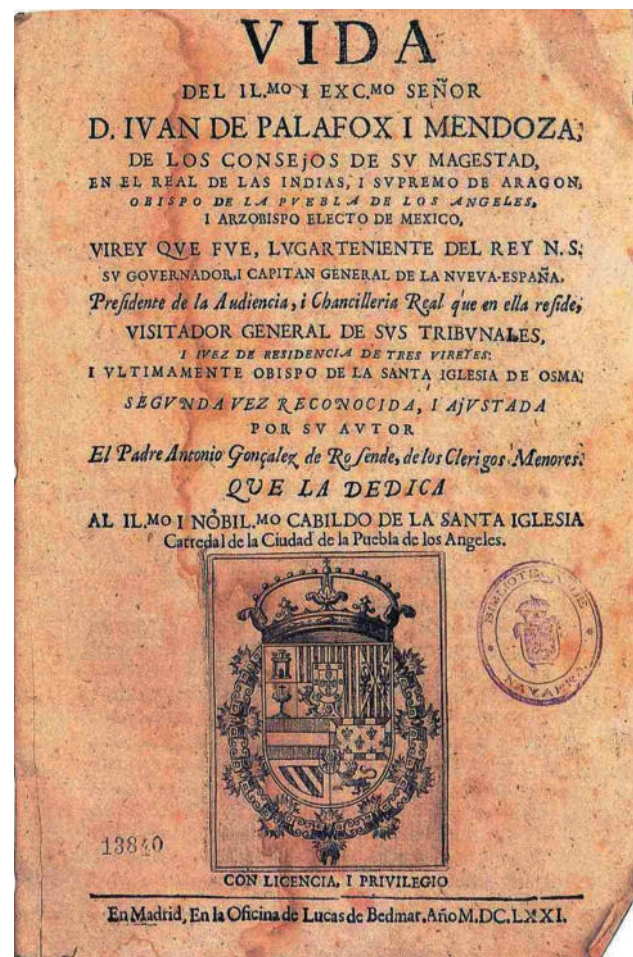 VIDA
DEL IL.MO I EXC.MO SEÑOR
D. IVAN DE PALAFOX I MENDOZA,
DE LOS CONSEjOS DE SV MAGESTAD,
EN EL REAL DE LAS INDIAS, I SVPREMO DE ARAGON,
OBISPO DE LA PVEBLA DE LOS ANGELES,
I ARZOBISPO ELECTO DE MEXICO,
VIREY QVE FVE, LVGARTENIENTE DEL REY N. S.
SV GOVERNADOR, I CAPITAN GENERAL DE LA NVEVA-ESPAÑA,
Preſidente de la Audiencia, i Chancilleria Real que en ella reſide,
VISITADOR GENERAL DE SVS TRIBVNALES,
I IVEZ DE RESIDENCIA DE TRES VIREYES:
I VLTIMAMENTE OBISPO DE LA SANTA IGLESIA DE OSMA;
SEGVNDA VEZ RECONOCIDA, I AjVSTADA
POR SV AVTOR
El Padre Antonio Gonçalez de Roſende, de los Clerigos Menores.
QVE LA DEDICA
AL IL.MO I NOBIL.MO CABILDO DE LA SANTA IGLESIA
Catredal de la Ciudad de la Puebla de los Angeles.
BIBLIOTECA DE
NAVARRA
13840
CON LICENCIA, I PRIVILEGIO
En Madrid, En la Oficina de Lucas de Bedmar. Año M.DC.LXXI.